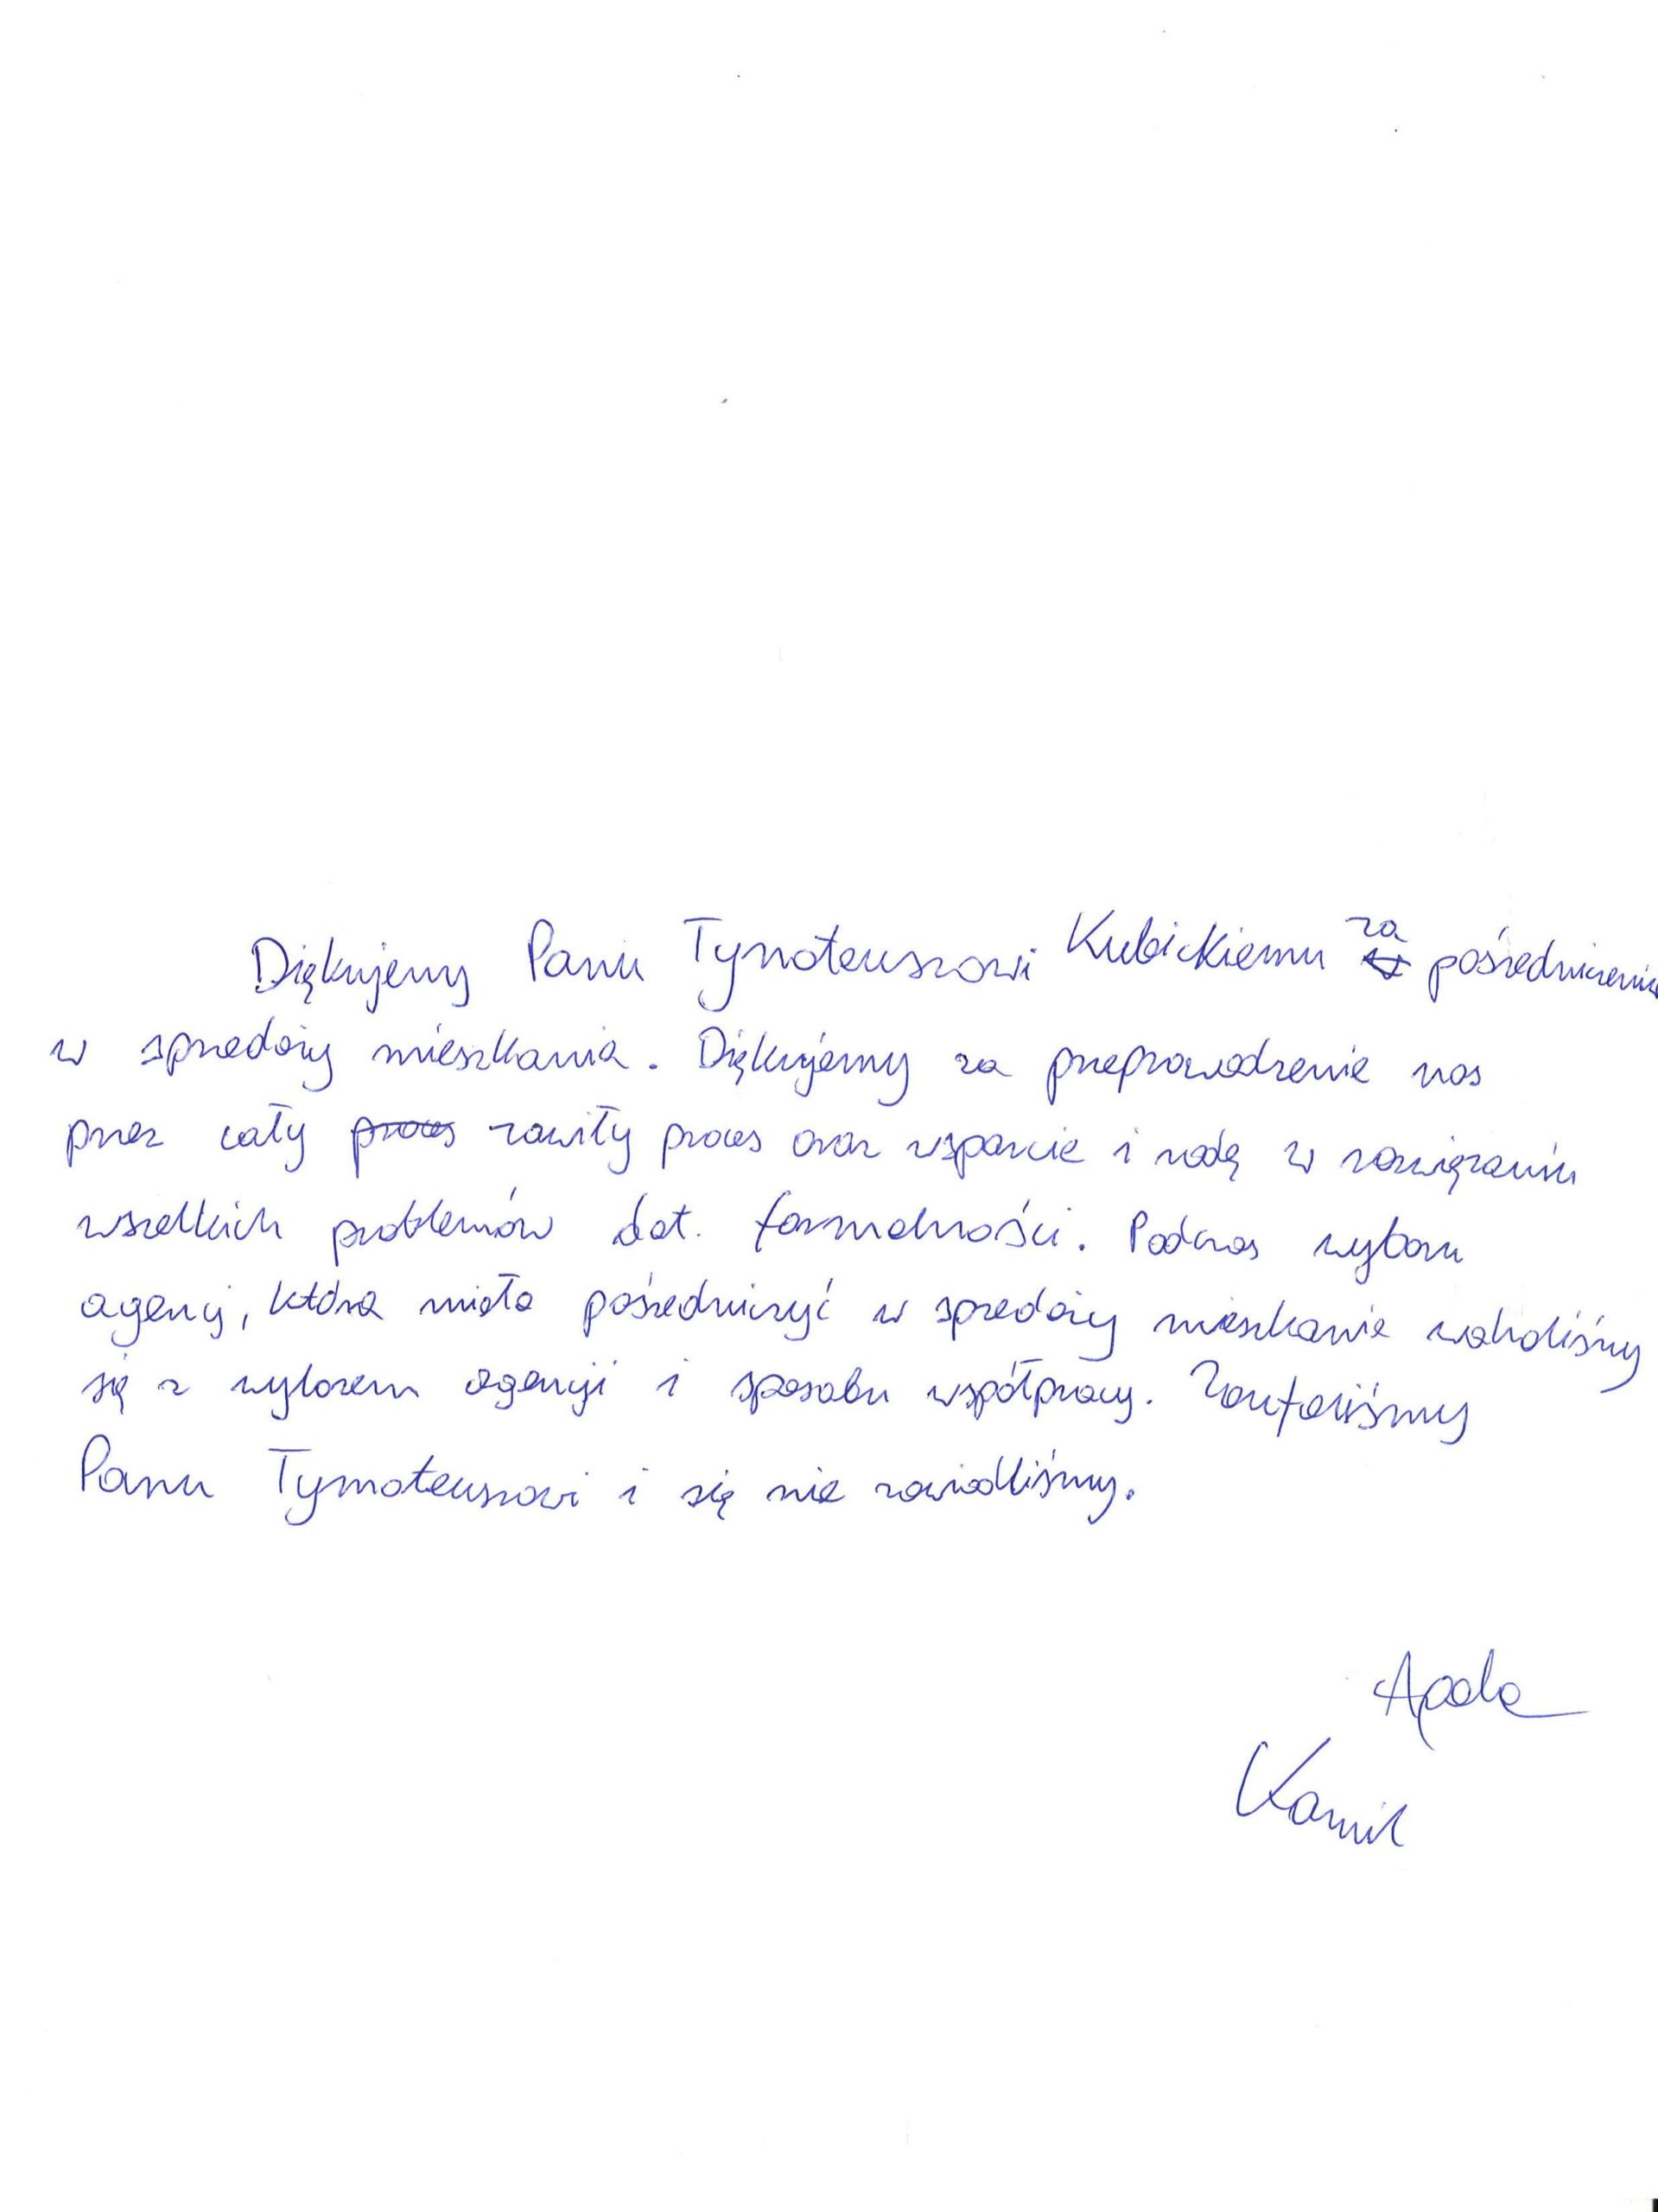 Dziękujemy Panu Tymoteuszowi Kubickiemu za pośredniczenie
w sprzedaży mieszkania. Dziękujemy za przeprowadzenie nas
przez cały proces zawiły proces oraz wsparcie i radę w rozwiązaniu
wszelkich problemów dot. formalności. Podczas wyboru
agencj, która miała pośredniczyć w sprzedaży mieszkania wahaliśmy
się z wyborem agencji i sposobu współpracy. Zaufaliśmy
Panu Tymoteuszowi i się nie zawiedliśmy.
Kamil